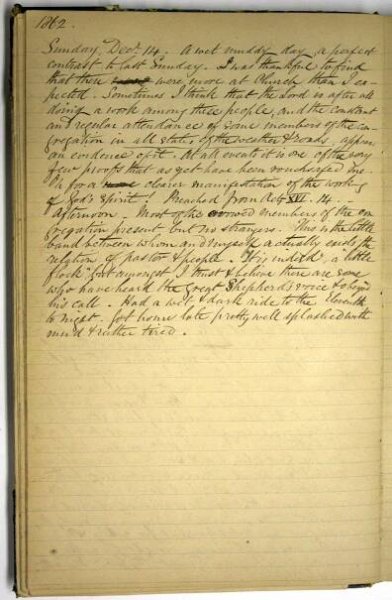 1862.
Sunday, Decr. 14. A wet muddy day, a perfect
contrast to last Sunday. I was thankful to find
that there were more at Church than I ex-
pected. Sometimes I think that the Lord is after all
doing a work among these people, and the constant
and regular attendance of some members of the con-
gregation in all states of the weather & roads, appears
an evidence of it. At all events it is one of the very
few proofs that as yet have been vouchsafed me.
Oh for a clearer manifestation of the working
of God's Spirit! Preached from XVI. 14
afternoon. Most of the members of the con-
gregation present but no strangers. This is the little
band between whom and myself actually exists the
relation of pastor & people. It is indeed "a little
flock" but amongst I trust & believe there are some
who have heard the Great Shepherd's voice & obeyed
his call. Had a wet & dark ride to the Eleventh
to night. Got home late pretty well splashed with
mud & rather tired.